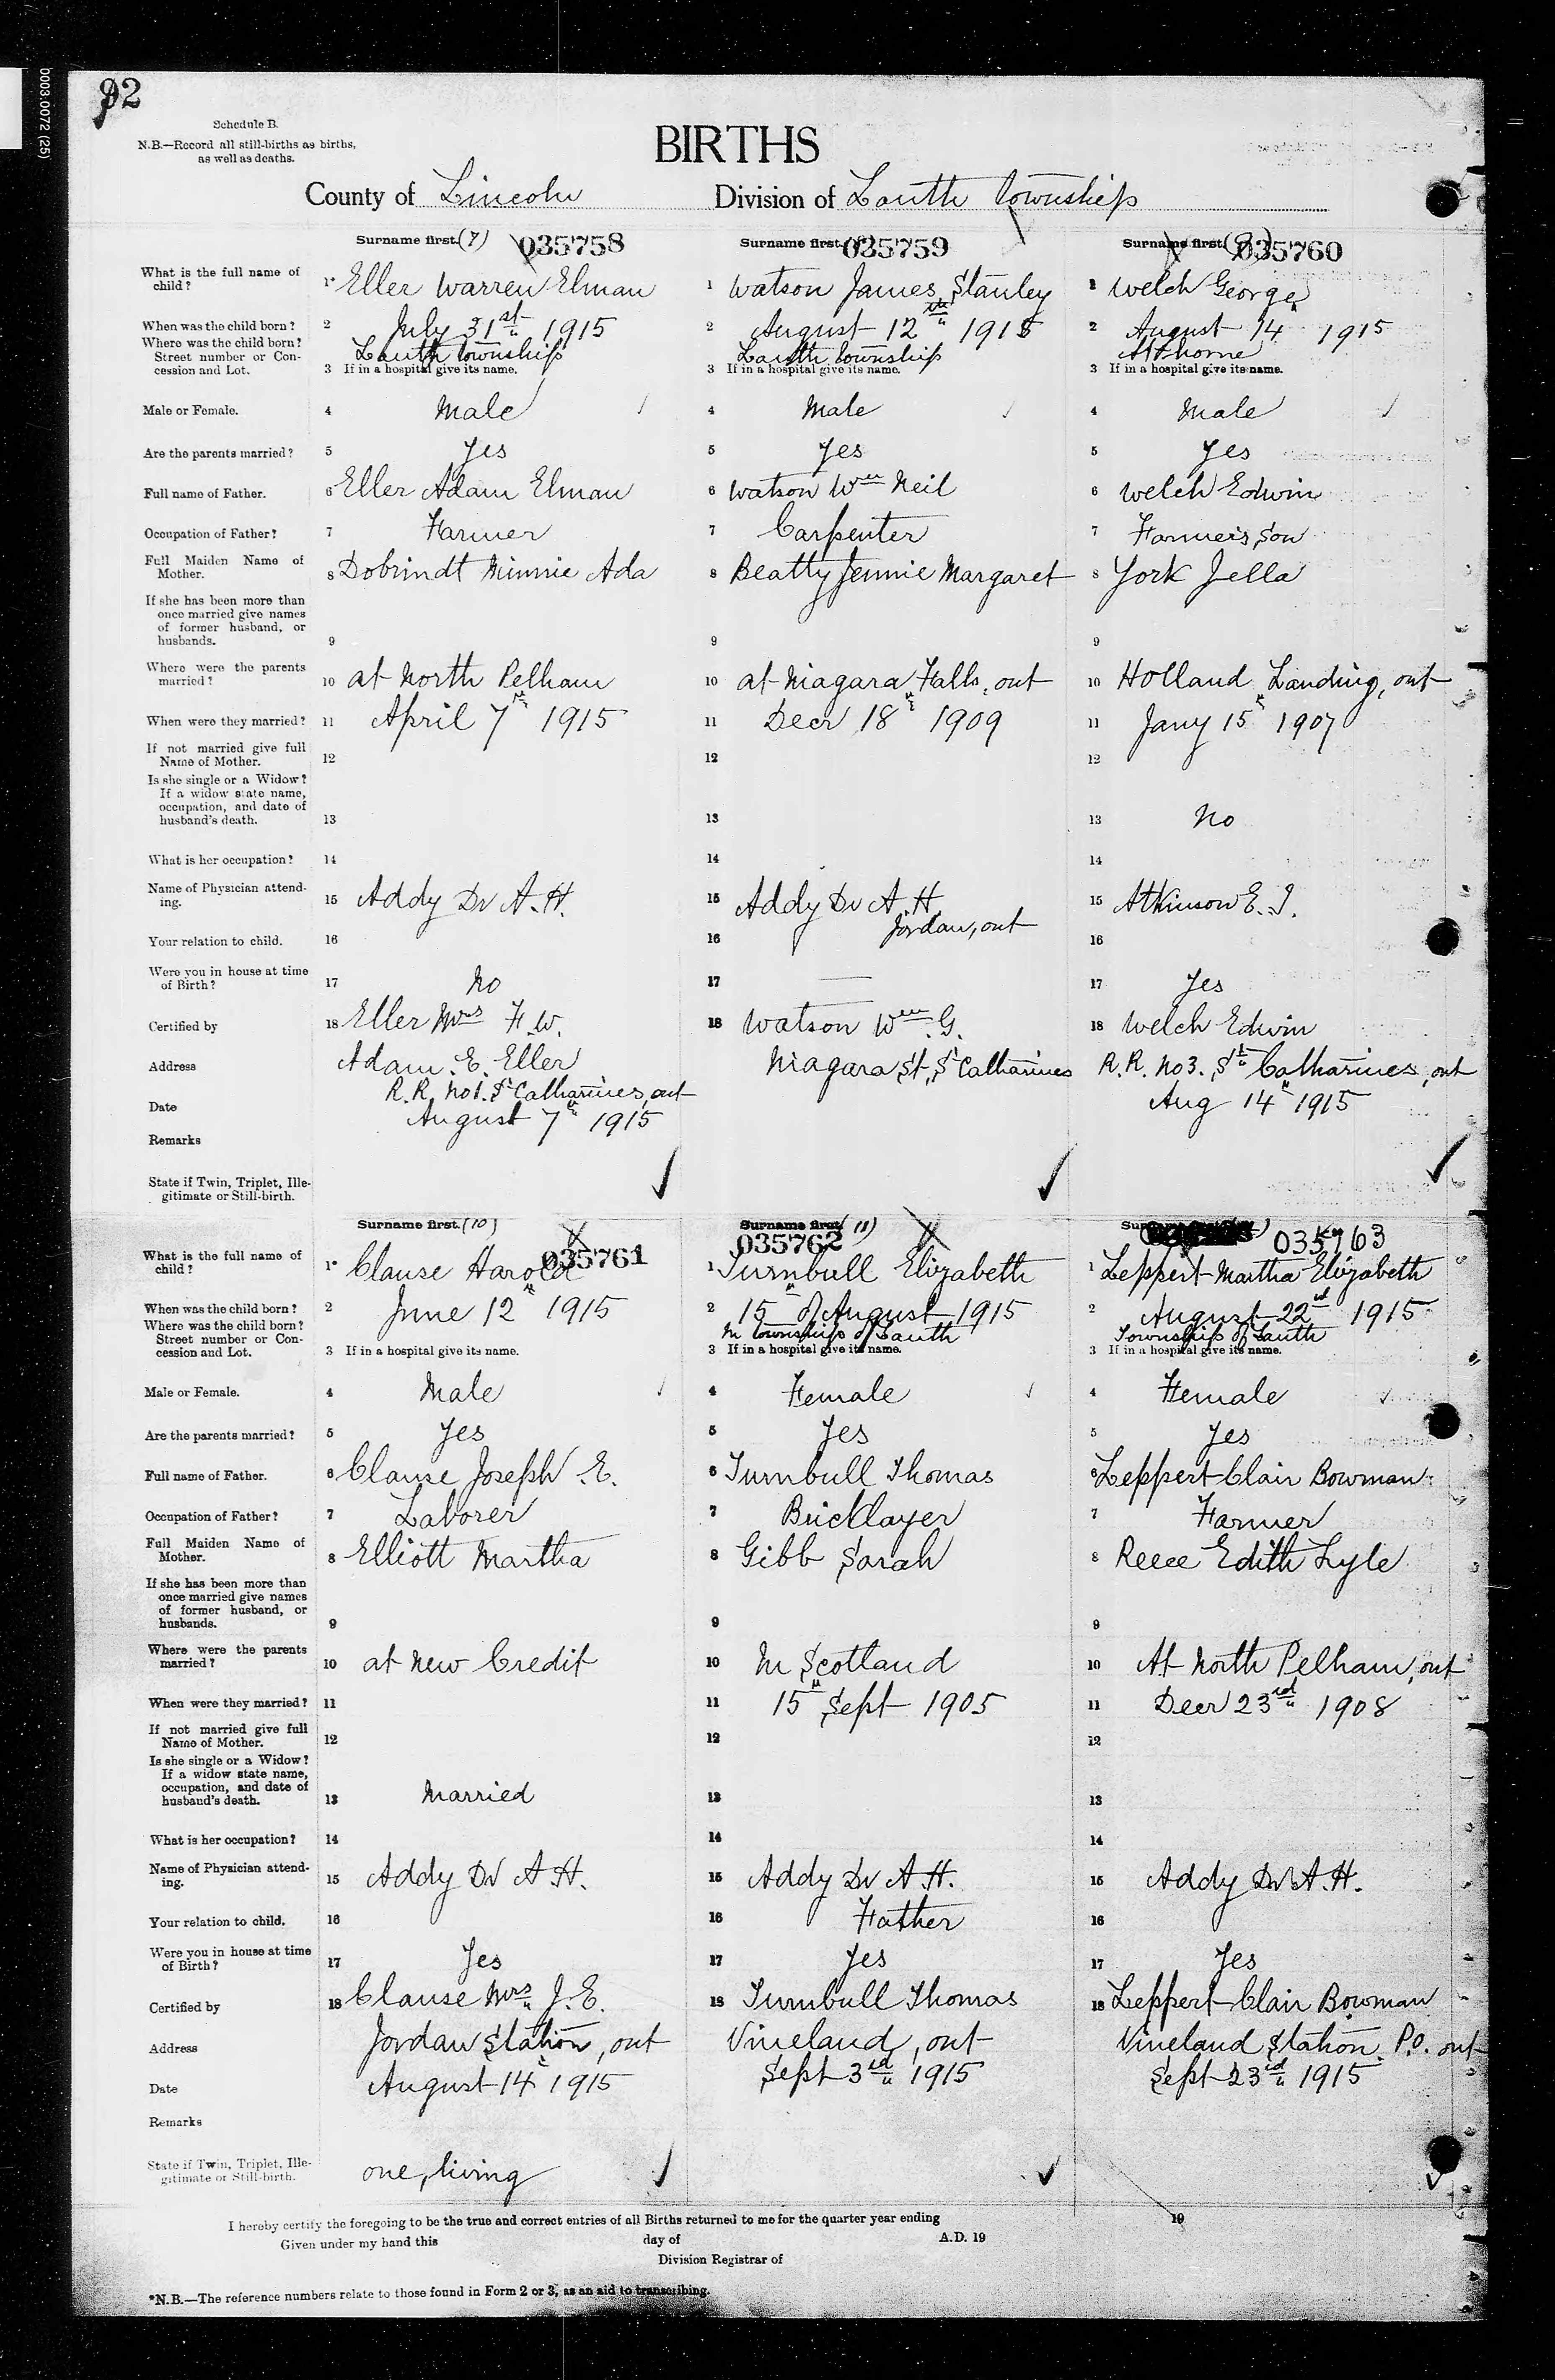 92
0003.0072 (25)
Schedule B.
N.B.—Record all still-births as births,
as well as deaths.
BIRTHS
County of Lincoln
Division of Louth Township
Surname first. (7) 035758
What is the full name of child? 1* Eller Warren Elman
When was the child born? 2 July 31st 1915
Where was the child born? Street number or Concession and Lot. Louth Township
3 If in a hospital give its name.
Male or Female. 4 Male
Are the parents married? 5 Yes
Full name of Father. 6 Eller Adam Elman
Occupation of Father? 7 Farmer
Full Maiden Name of Mother. 8 Dobrindt Minnie Ada
If she has been more than once married give names of former husband, or husbands. 9
Where were the parents married? 10 at North Pelham
When were they married? 11 April 7th 1915
If not married give full Name of Mother. 12
Is she single or a Widow? If a widow state name, occupation, and date of husband's death. 13
What is her occupation? 14
Name of Physician attending. 15 Addy Dr A. H.
Your relation to child. 16
Were you in house at time of Birth? 17 No
Certified by 18 Eller Mrs F. W.
Address Adam. E. Eller
R.R. No 1. St Catharines, ont
Date August 7th 1915
Remarks
State if Twin, Triplet, Illegitimate or Still-birth.
Surname first. 035759
1 Watson James Stanley
2 August 12th 1915
Louth Township
3 If in a hospital give its name.
4 Male
5 Yes
6 Watson Wm Neil
7 Carpenter
8 Beatty Jennie Margaret
9
10 at Niagara Falls, ont
11 Decr 18th 1909
12
13
14
15 Addy Dr A. H.
Jordan, ont
16
17 —
18 Watson Wm G.
Niagara St, St Catharines
Surname first. (9) 035760
1 Welch George
2 August 14 1915
3 If in a hospital give its name.
4 Male
5 Yes
6 Welch Edwin
7 Farmer's Son
8 York Jella
9
10 Holland Landing, ont
11 Jany 15th 1907
12
13 No
14
15 Atkinson E. J.
16
17 Yes
18 Welch Edwin
R.R. No 3. St Catharines, ont
Aug 14th 1915
Surname first. (10) 035761
What is the full name of child? 1* Clause Harold
When was the child born? 2 June 12th 1915
Where was the child born? Street number or Concession and Lot.
3 If in a hospital give its name.
Male or Female. 4 Male
Are the parents married? 5 Yes
Full name of Father. 6 Clause Joseph. E.
Occupation of Father? 7 Laborer
Full Maiden Name of Mother. 8 Elliott Martha
If she has been more than once married give names of former husband, or husbands. 9
Where were the parents married? 10 at New Credit
When were they married? 11
If not married give full Name of Mother. 12
Is she single or a Widow? If a widow state name, occupation, and date of husband's death. 13 Married
What is her occupation? 14
Name of Physician attending. 15 Addy Dr A. H.
Your relation to child. 16
Were you in house at time of Birth? 17 Yes
Certified by 18 Clause Mrs J. E.
Address Jordan Station, ont
Date August 14th 1915
Remarks
State if Twin, Triplet, Illegitimate or Still-birth. one, living
Surname first. (11) 035762
1 Turnbull Elizabeth
2 15th of August 1915
In Township of Louth
3 If in a hospital give its name.
4 Female
5 Yes
6 Turnbull Thomas
7 Bricklayer
8 Gibb Sarah
9
10 In Scotland
11 15th Sept 1905
12
13
14
15 Addy Dr A. H.
16 Father
17 Yes
18 Turnbull Thomas
Vineland, ont
Sept 3rd 1915
035763
1 Leppert Martha Elizabeth
2 August 22nd 1915
Township of Louth
3 If in a hospital give its name.
4 Female
5 Yes
6 Leppert Clair Bowman
7 Farmer
8 Reece Edith Lyle
9
10 At North Pelham, ont
11 Decr 23rd 1908
12
13
14
15 Addy Dr A. H.
16
17 Yes
18 Leppert Clair Bowman
Vineland Station P.O. ont
Sept 23rd 1915
I hereby certify the foregoing to be the true and correct entries of all Births returned to me for the quarter year ending 19
Given under my hand this day of A.D. 19
Division Registrar of
*N.B.—The reference numbers relate to those found in Form 2 or 3, as an aid to transcribing.